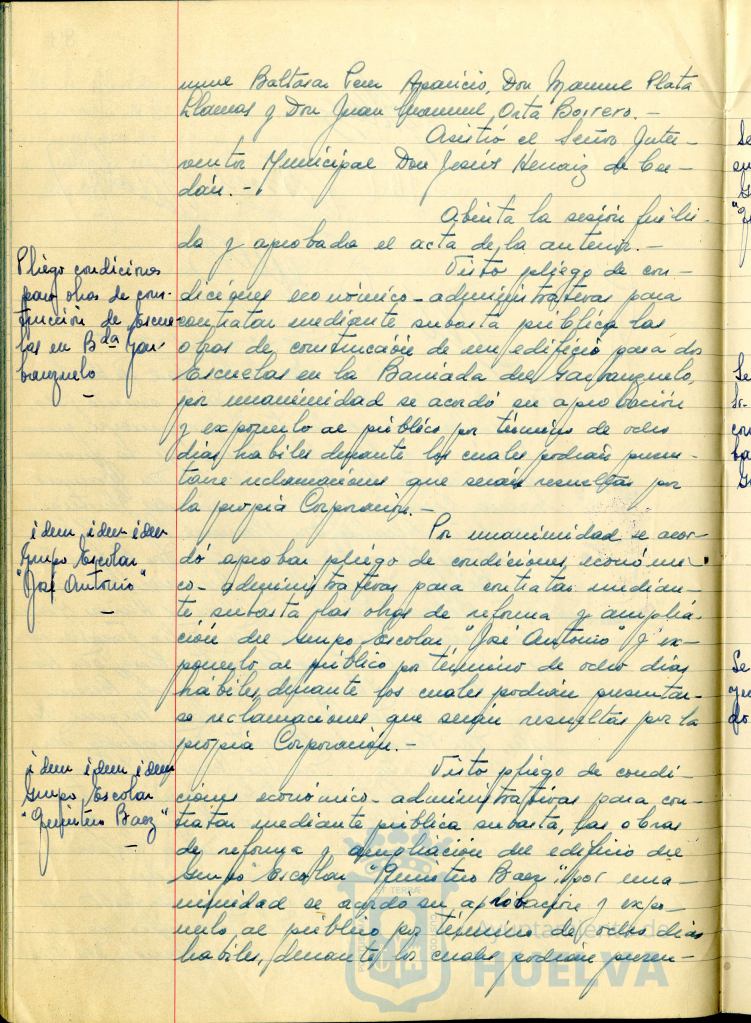 Baltasar Pern Aparicio, Don Manuel Plata
Llamas y Don Juan Manuel Orta Borrero.-
Asistió el Señor Inter-
ventor Municipal Don Jesús Henaiz de Ce-
dán.-
Abierta la sesión fué leí-
da y aprobada el acta de la anterior.-
Pliego condiciones
para obras de cons-
trucción de Escue-
las en Bda Gar-
ranzuelo
-
Visto pliego de con-
diciones económico-administrativas para
contratar mediante subasta pública las
obras de construcción de un edificio para dos
Escuelas en la Barriada del Garranzuelo,
por unanimidad se acordó su aprobación
y exponerlo al público por término de ocho
días hábiles durante los cuales podrán presen-
tarse reclamaciones que serán resueltas por
la propia Corporación.-
idem idem idem
Grupo Escolar
"José Antonio"
-
Por unanimidad se acor-
dó aprobar pliego de condiciones económi-
co-administrativas para contratar median-
te subasta las obras de reforma y amplia-
ción del Grupo Escolar "José Antonio" y ex-
ponerlo al público por término de ocho días
hábiles, durante los cuales podrán presentar-
se reclamaciones que serán resueltas por la
propia Corporación.-
idem idem idem
Grupo Escolar
"Quintero Baez"
-
Visto pliego de condi-
ciones económico-administrativas para con-
tratar mediante pública subasta, las obras
de reforma y ampliación del edificio del
Grupo Escolar "Quintero Baez", por una-
nimidad se acordó su aprobación y expo-
nerlo al público por término de ocho días
habiles, durante los cuales podrán presen-
Ayuntamiento de
HUELVA